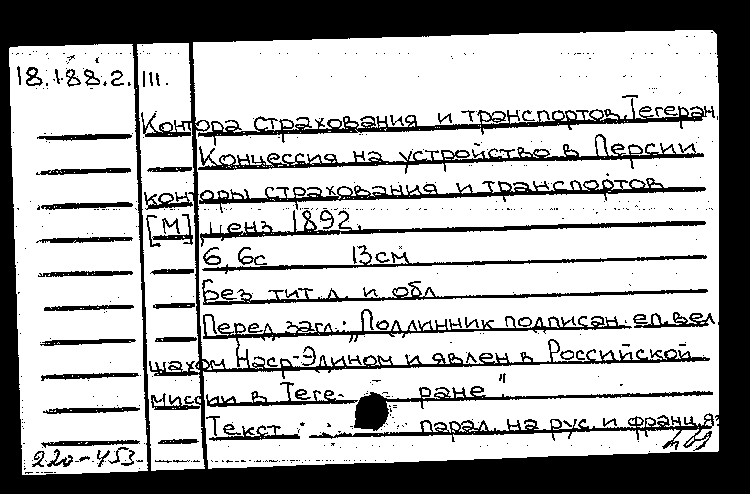 18.188.2. III.
Контора страхования и транспортов. Тегеран.
Концессия на устройство в Персии
конторы страхования и транспортов
[М] ценз 1892.
6, 6с 13см
Без тит. л. и обл
Перед загл.: „Подлинник подписан е.п. вел.
шахом Наср-Эдином и явлен в Российской
миссии в Теге- ране"
Текст парал. на рус. и франц. яз
220-453